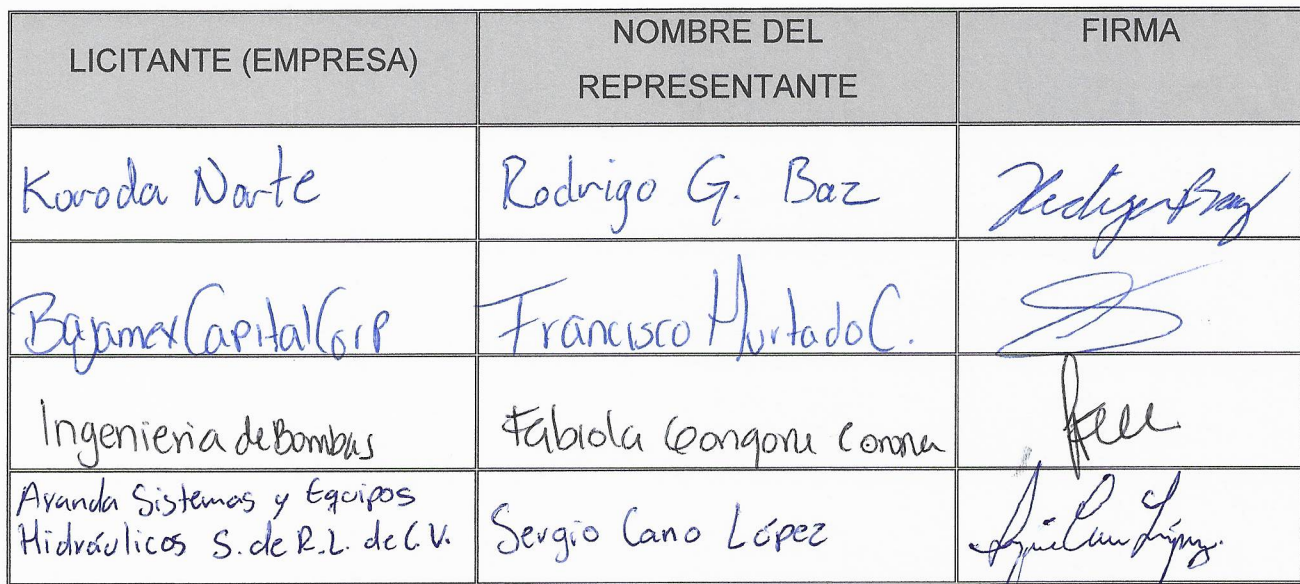 LICITANTE (EMPRESA)
NOMBRE DEL
REPRESENTANTE
FIRMA
Koroda Norte
Rodrigo G. Baz
Bajamex Capital Corp
Francisco Hurtado C.
Ingenieria de Bombas
Fabiola Gongora Corona
Aranda Sistemas y Equipos
Hidráulicos S. de R.L. de C.V.
Sergio Cano López